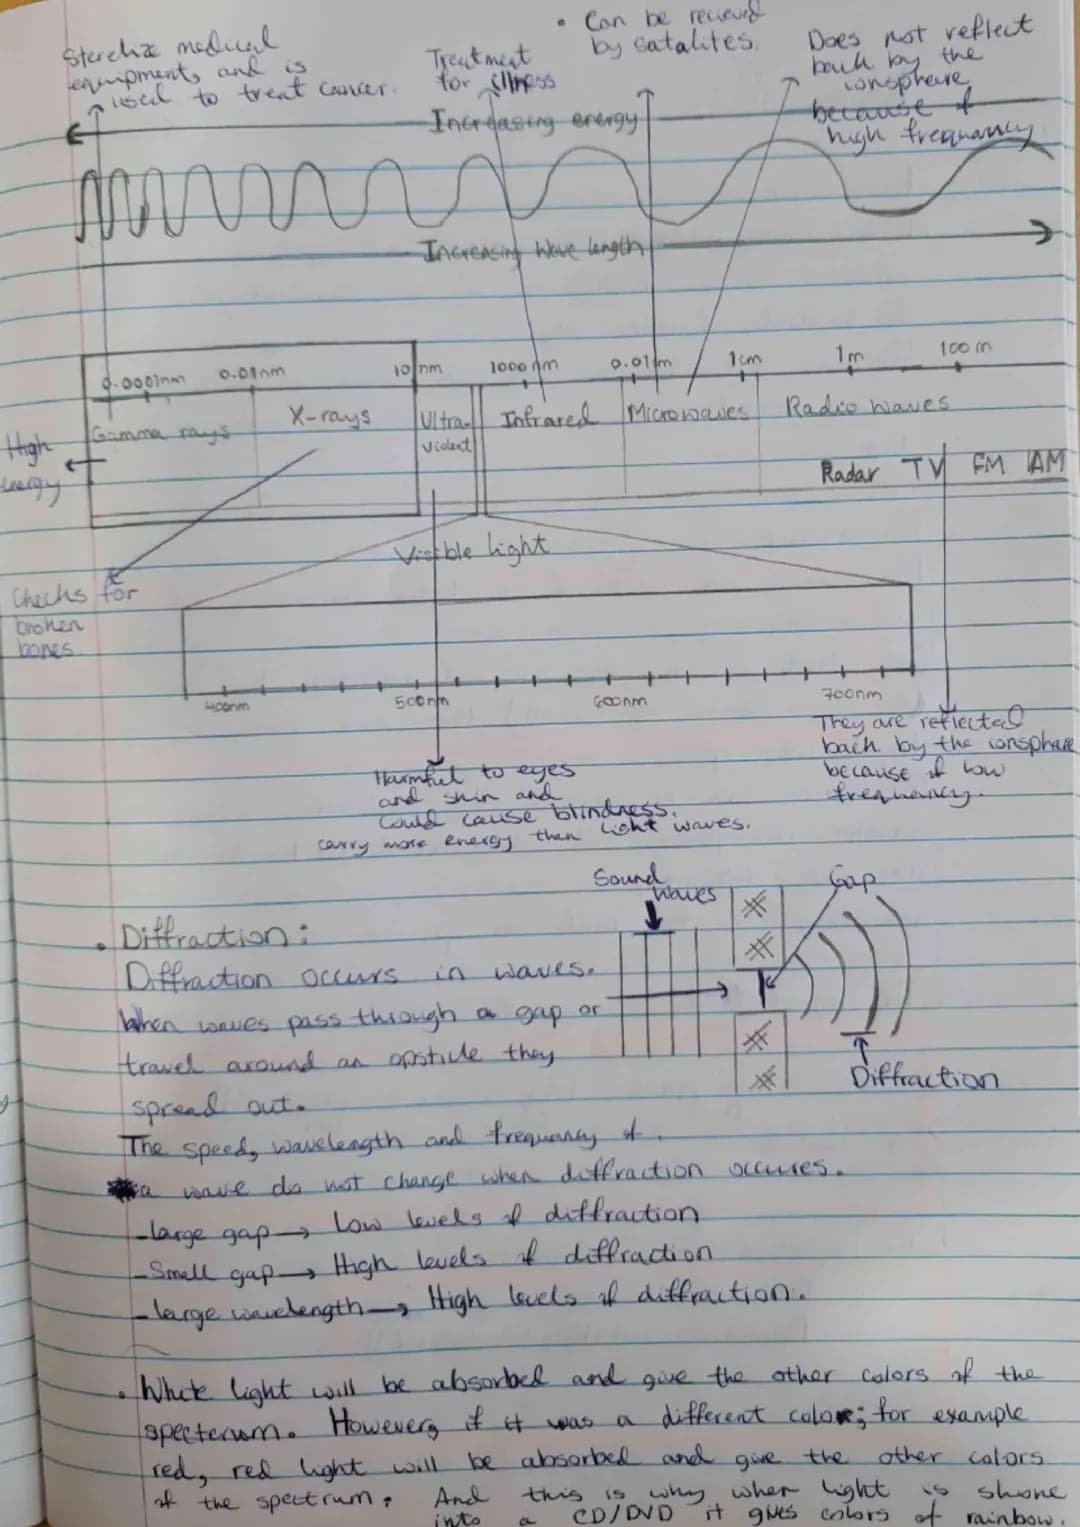 Sterelize medical
equipments and is
used to treat cancer.
Treatment
for illness
• Can be recieved
by satalites.
Does not reflect
back by the
ionsphere
because of
high frequancy
Increasing energy
Increasing Wave length
0.0001nm 0.01nm 10nm 1000nm 0.01m 1cm 1m 100m
Gamma rays X-rays Ultra-
violent
Infrared Microwaves Radio waves
High
energy
Radar TV FM AM
Visible light
Checks for
broken
bones.
400nm 500nm 600nm 700nm
They are reflected
back by the ionsphere
because of low
frequancy.
Harmful to eyes
and skin and
could cause blindness.
carry more energy then light waves.
Sound
waves
Gap
Diffraction
• Diffraction:
Diffraction occurs in waves.
When waves pass through a gap or
travel around an opsticle they
spread out.
The speed, wavelength and frequancy of
a wave do not change when diffraction occures.
-large gap → Low levels of diffraction
-Small gap → High levels of diffraction
-large wavelength → High levels of diffraction.
• White light will be absorbed and give the other colors of the
specterum. However, if it was a different color; for example
red, red light will be absorbed and give the other colors
of the spectrum. And this is why when light is shone
into a CD/DVD it gives colors of rainbow.